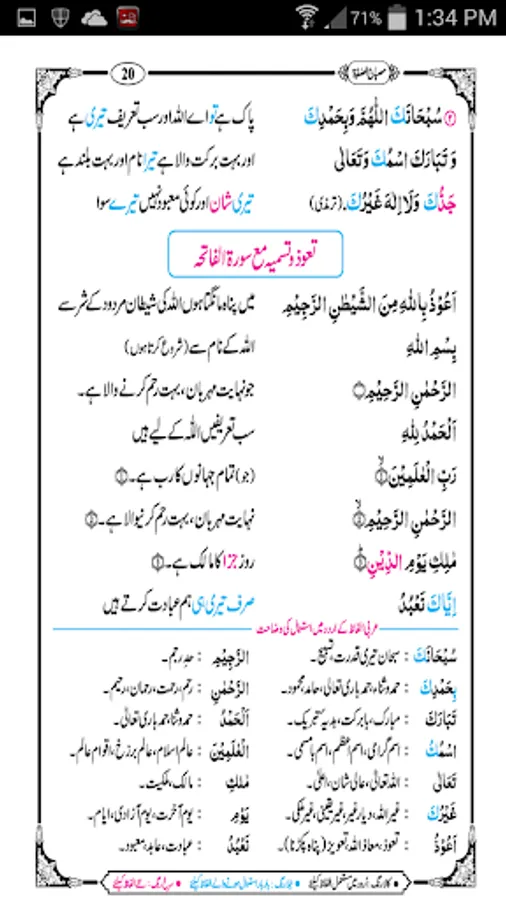 71% 1:34 PM
20 مصباح الصلوٰۃ
۲ سُبْحَانَكَ اللّٰهُمَّ وَبِحَمْدِكَ پاک ہے تو اے اللہ اور سب تعریف تیری ہے
وَ تَبَارَكَ اسْمُكَ وَتَعَالٰی اور بہت برکت والا ہے تیرا نام اور بہت بلند ہے
جَدُّكَ وَلَا اِلٰهَ غَيْرُكَ۔ (ترمذی) تیری شان اور کوئی معبود نہیں تیرے سوا
تعوذ و تسمیہ مع سورۃ الفاتحہ
اَعُوْذُ بِاللّٰهِ مِنَ الشَّيْطٰنِ الرَّجِيْمِ میں پناہ مانگتا ہوں اللہ کی شیطان مردود کے شر سے
بِسْمِ اللّٰهِ اللہ کے نام سے (شروع کرتا ہوں)
الرَّحْمٰنِ الرَّحِيْمِ جو نہایت مہربان، بہت رحم کرنے والا ہے۔
اَلْحَمْدُ لِلّٰهِ سب تعریفیں اللہ کے لیے ہیں
رَبِّ الْعٰلَمِيْنَ (جو) تمام جہانوں کا رب ہے۔
الرَّحْمٰنِ الرَّحِيْمِ نہایت مہربان، بہت رحم کرنیوالا ہے۔
مٰلِكِ يَوْمِ الدِّيْنِ روز جزا کا مالک ہے۔
اِيَّاكَ نَعْبُدُ صرف تیری ہی ہم عبادت کرتے ہیں
عربی الفاظ کے اردو میں استعمال کی وضاحت
سُبْحَانَكَ : سبحان تیری قدرت، تسبیح۔ الرَّجِيْمِ : حدِ رجم۔
بِحَمْدِكَ : حمد و ثنا، حمد باری تعالیٰ، حامد، محمود۔ الرَّحْمٰنِ : رحم، رحمت، رحمان، رحیم۔
تَبَارَكَ : مبارک، بابرکت، ہدیہ تبریک۔ اَلْحَمْدُ : حمد و ثنا، حمد باری تعالیٰ۔
اسْمُكَ : اسم گرامی، اسم اعظم، اسم بامسمی۔ الْعٰلَمِيْنَ : عالم اسلام، عالم برزخ، اقوام عالم۔
تَعَالٰی : اللہ تعالیٰ، عالی شان، اعلیٰ۔ مٰلِكِ : مالک، ملکیت۔
غَيْرُكَ : غیر اللہ، دیار غیر، غیر یقینی، غیر ملکی۔ يَوْمِ : یوم آخرت، یوم آزادی، ایام۔
اَعُوْذُ : تعوذ، معاذ اللہ، تعویذ (پناہ پکڑنا)۔ نَعْبُدُ : عبادت، عابد، معبود۔
• کالا رنگ: اردو میں مستعمل الفاظ کیلئے • نیلا رنگ: بار بار استعمال ہونے والے الفاظ کیلئے • سرخ رنگ: نئے الفاظ کیلئے